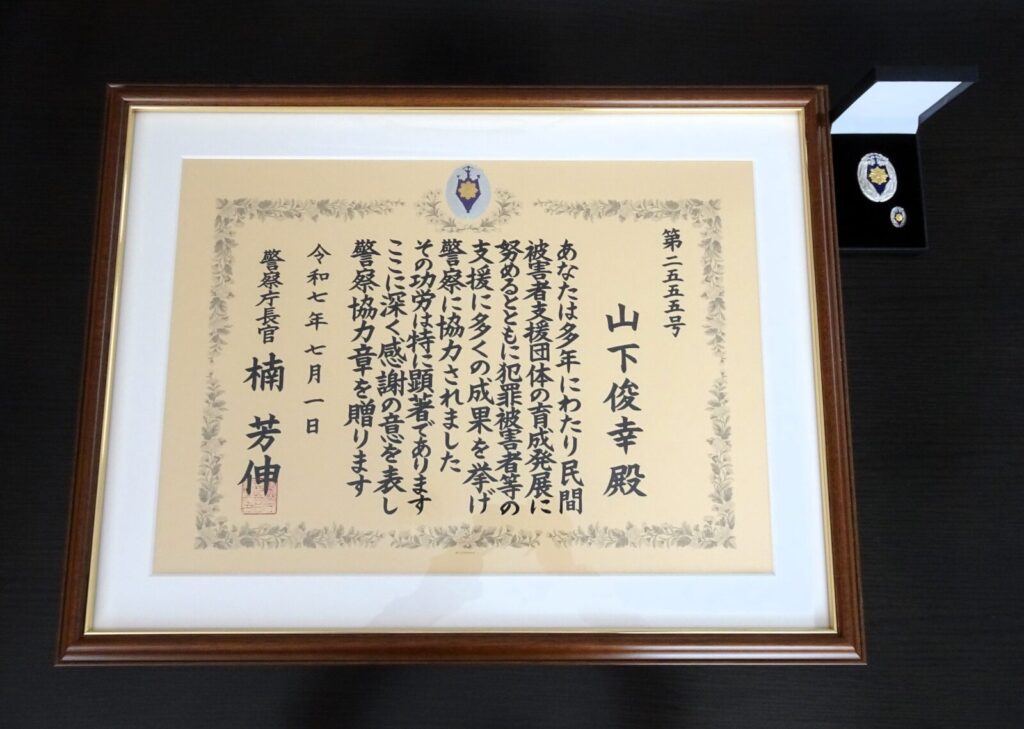 第二五五五号
山下俊幸殿
あなたは多年にわたり民間
被害者支援団体の育成発展に
努めるとともに犯罪被害者等の
支援に多くの成果を挙げ
警察に協力されました
その功労は特に顕著であります
ここに深く感謝の意を表し
警察協力章を贈ります
令和七年七月一日
警察庁長官 楠芳伸